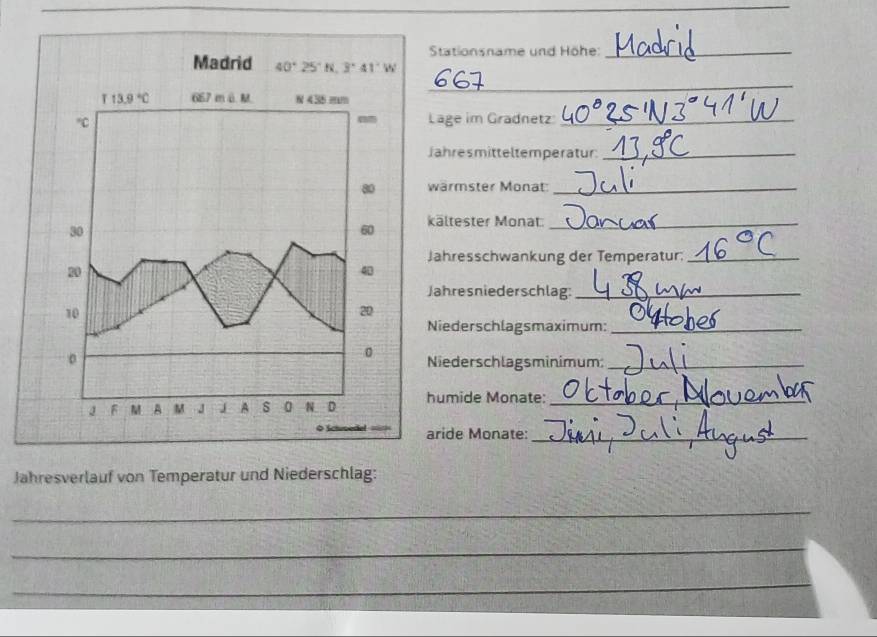 Madrid 40° 25' N, 3° 41' W
T 13,9 °C 667 m ü. M. N 438 mm
°C mm
80
30 60
20 40
10 20
0 0
J F M A M J J A S O N D
Stationsname und Höhe: Madrid
667
Lage im Gradnetz: 40°25'N3°41'W
Jahresmitteltemperatur: 13,9°C
wärmster Monat: Juli
kältester Monat: Januar
Jahresschwankung der Temperatur: 16°C
Jahresniederschlag: 438 mm
Niederschlagsmaximum: Oktober
Niederschlagsminimum: Juli
humide Monate: Oktober, November
aride Monate: Juni, Juli, August
Jahresverlauf von Temperatur und Niederschlag: